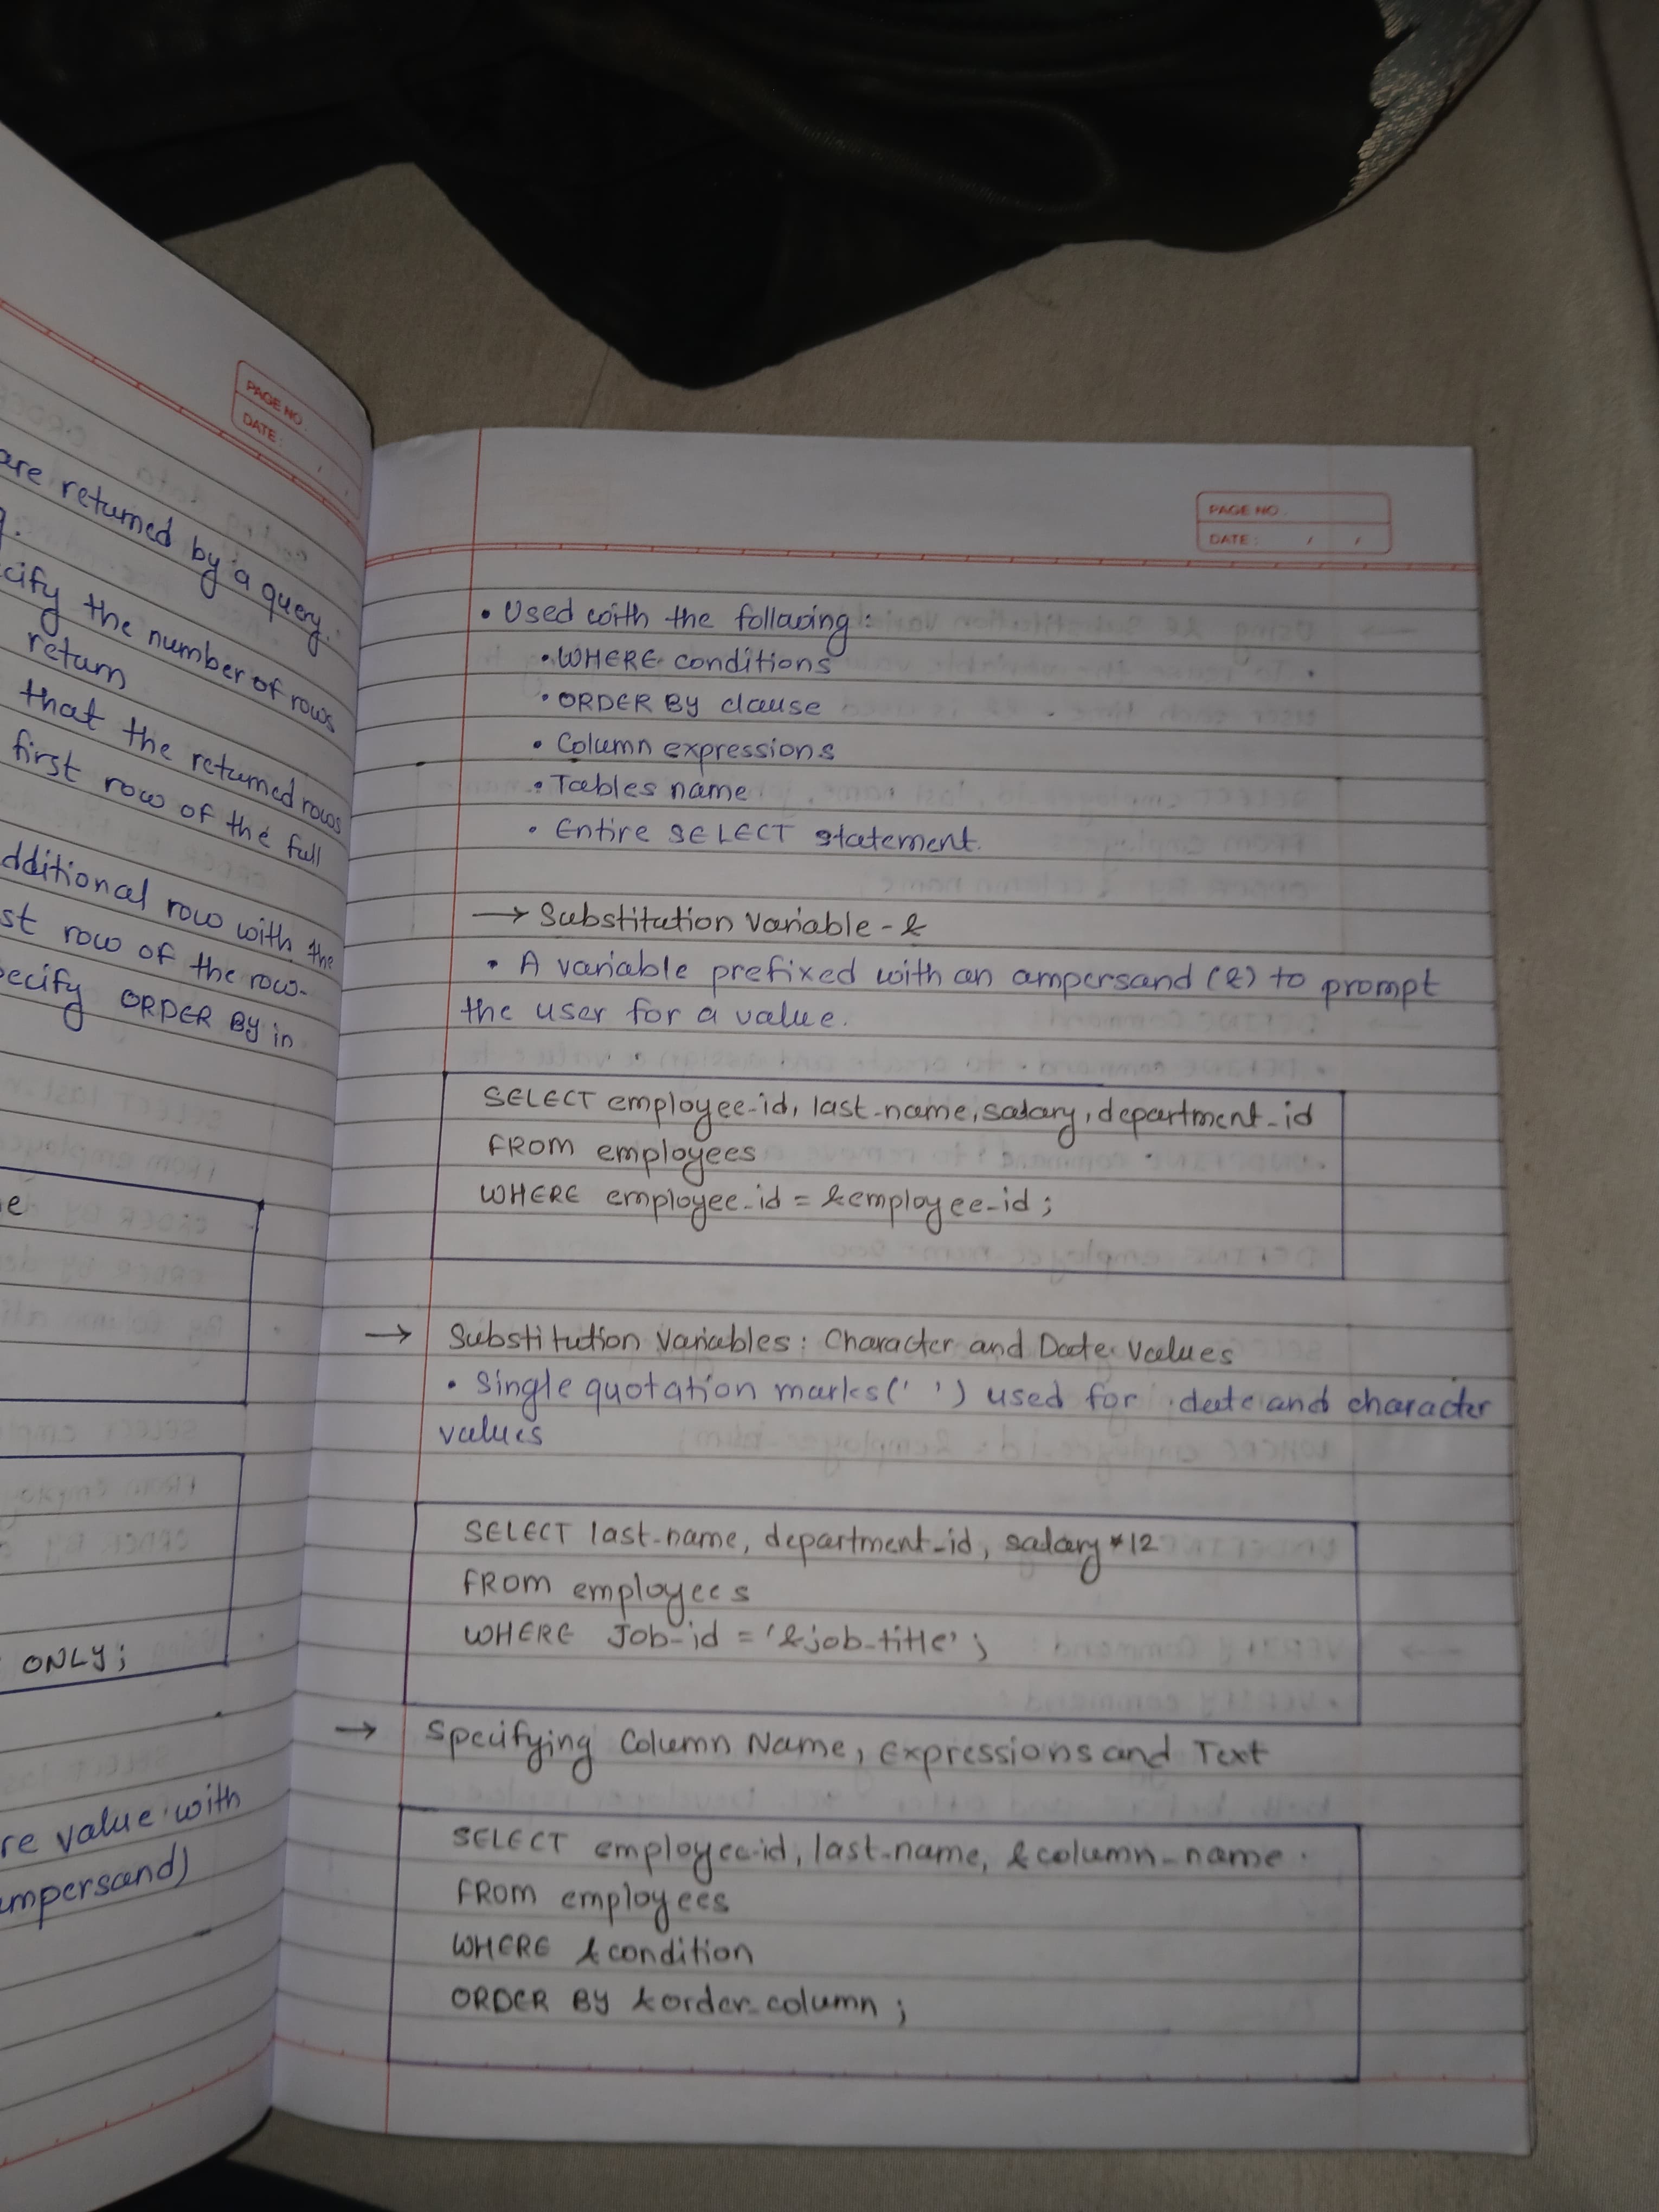 PAGE NO.
DATE:
are returned by a query.
cify the number of rows
return
that the returned rows
first row of the full
dditional row with the
st row of the row-
pecify ORDER By in
e
ONLY;
re value with
mpersand)
PAGE NO.
DATE: / /
• Used with the following:
• WHERE conditions
• ORDER By clause
• Column expressions
• Tables name
• Entire SELECT statement.
→ Substitution Variable - &
• A variable prefixed with an ampersand (&) to prompt
the user for a value.
SELECT employee_id, last_name, salary, department_id
FROM employees
WHERE employee_id = &employee_id;
→ Substitution Variables: Character and Date Values
• Single quotation marks(' ') used for date and character
values
SELECT last_name, department_id, salary*12
FROM employees
WHERE Job_id = '&job_title';
→ Specifying Column Name, Expressions and Text
SELECT employee_id, last_name, &column_name
FROM employees
WHERE &condition
ORDER By &order_column;